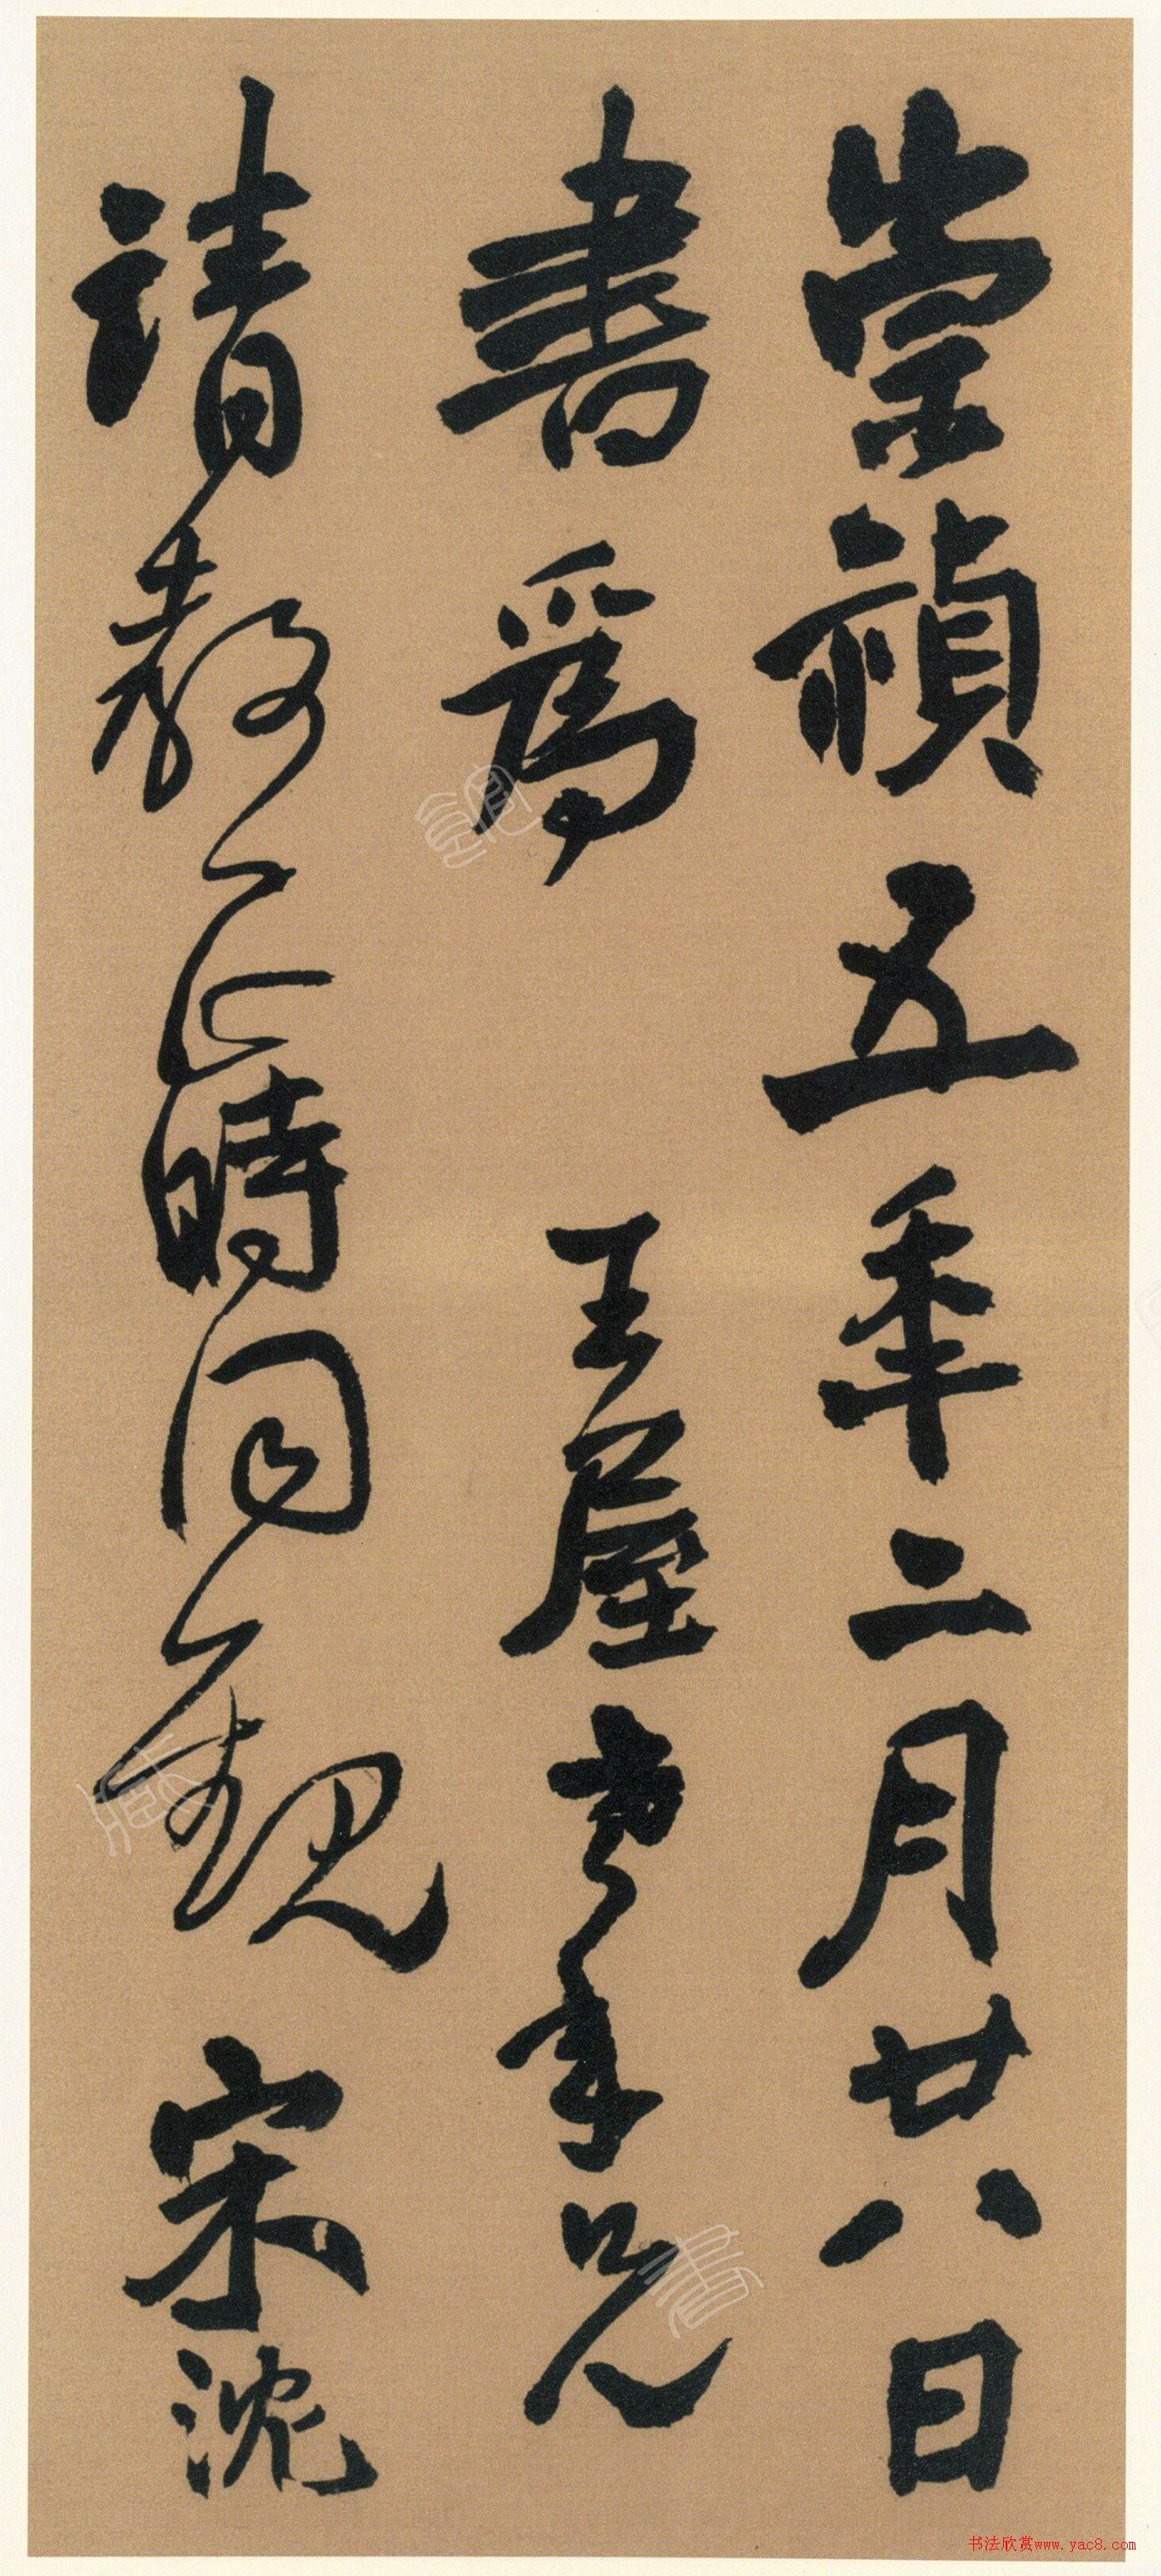 崇禎五年二月廿八日
書爲王屋老年兄
請教正時同觀宋沈
书法欣赏www.yac8.com